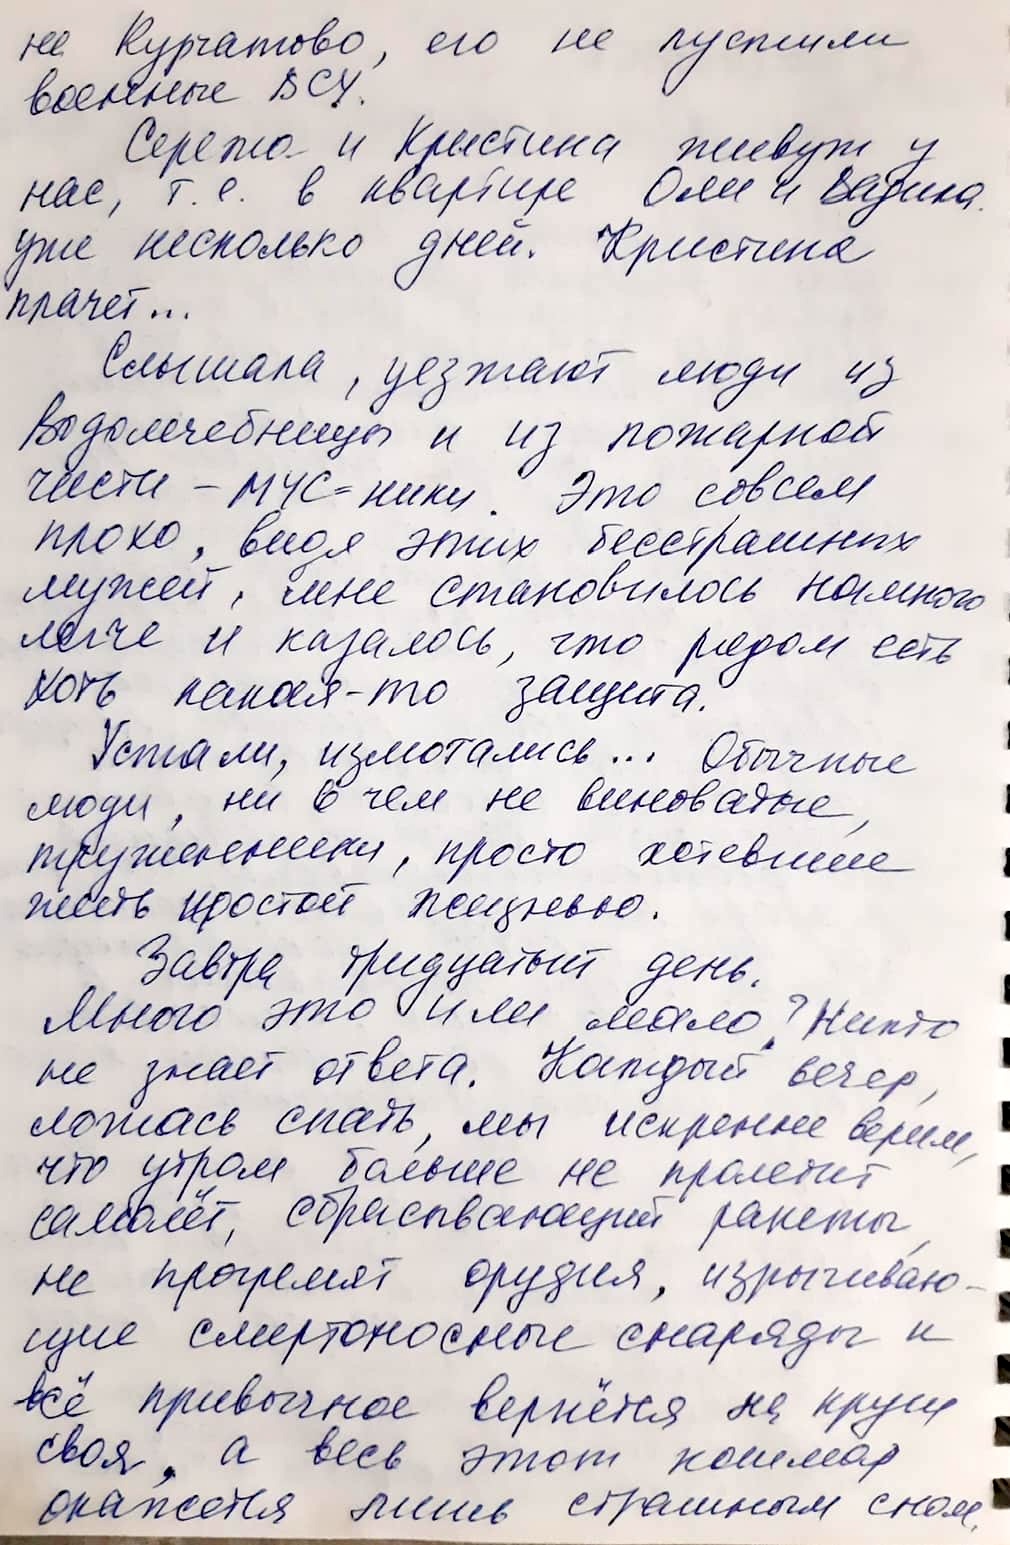 не Курчатово, его не пустили
военные ВСУ.
Сережа и Кристина живут у
нас, т.е. в квартире Оли и Вадика
уже несколько дней. Кристина
плачет...
Слышала, уезжают люди из
Водолечебницы и из пожарной
части - МЧС=ники. Это совсем
плохо, видя этих бесстрашных
мужей, мне становилось намного
легче и казалось, что рядом есть
хоть какая-то защита.
Устали, измотались... Обычные
люди, ни в чем не виноватые,
труженники, просто хотевшие
жить простой жизнью.
Завтра тридцатый день.
Много это или мало? Никто
не знает ответа. Каждый вечер,
ложась спать, мы искренне верим,
что утром больше не пролетит
самолёт, сбрасывающий ракеты,
не прогремят орудия, изрыгиваю-
щие смертоносные снаряды и
всё привычное вернётся на круги
своя, а весь этот кошмар
окажется лишь страшным сном.